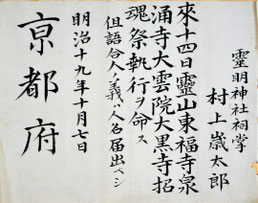 靈明神社祠掌
村上歳太郎
來十四日靈山東福寺泉
涌寺大雲院大黒寺招
魂祭執行ヲ命ス
但語合人ノ義ハ人名届出ベシ
明治十九年十月七日
京都府